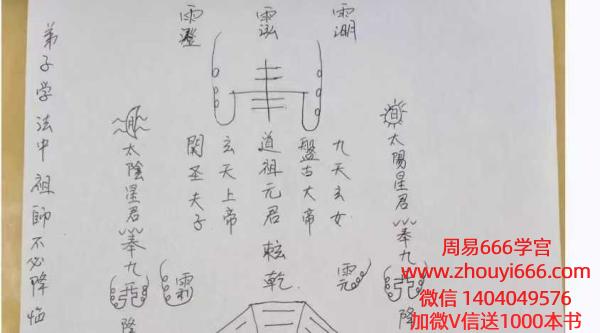 太陽星君
奉九
降
九天玄女
盤古大帝
道祖元君
玄天上帝
関圣夫子
太陰星君
奉九
降
弟子学法中祖師不必降临
乾
周易666学宫
www.zhouyi666.com
微信 1404049576
加微V信送1000本书